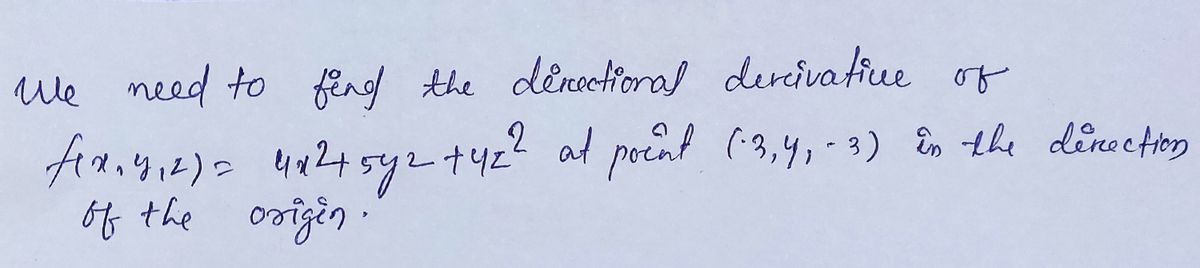 We need to find the directional derivative of
f(x,y,z) = 4x²+5yz+4z² at point (-3,4,-3) in the direction
of the origin.